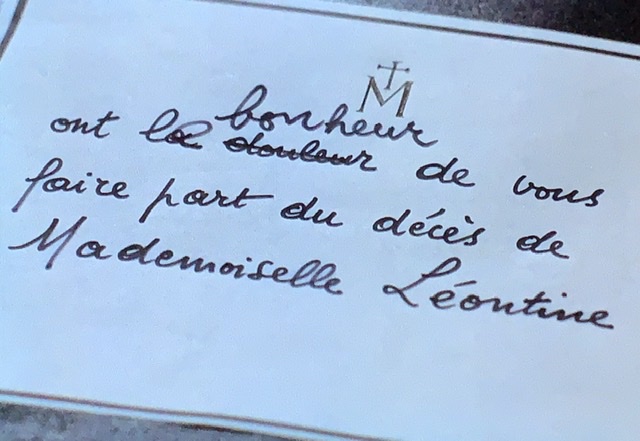 M
bonheur
ont le douleur de vous
faire part du décès de
Mademoiselle Léontine